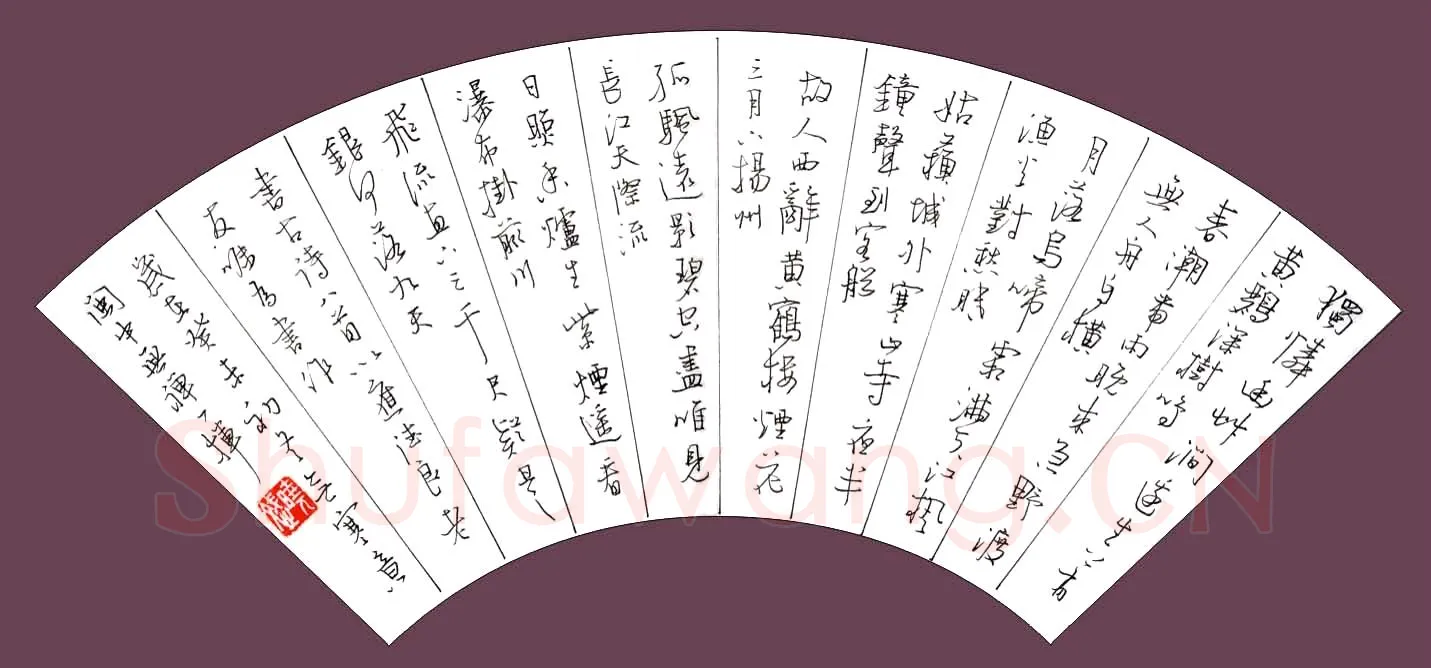 獨憐幽艸澗邊生上有
黃鸝深樹鳴
春潮帶雨晚來急野渡
無人舟自橫
月落烏啼霜滿天江楓
漁火對愁眠
姑蘓城外寒山寺夜半
鐘聲到客船
故人西辭黃鶴樓煙花
三月下揚州
孤颿遠影碧空盡唯見
長江天際流
日照香爐生紫煙遙看
瀑布掛前川
飛流直下三千尺疑是
銀河落九天
書古詩八首以應法良老
友囑為書作
歲在癸未初冬寒意
閩中無禪
Shufawang.CN